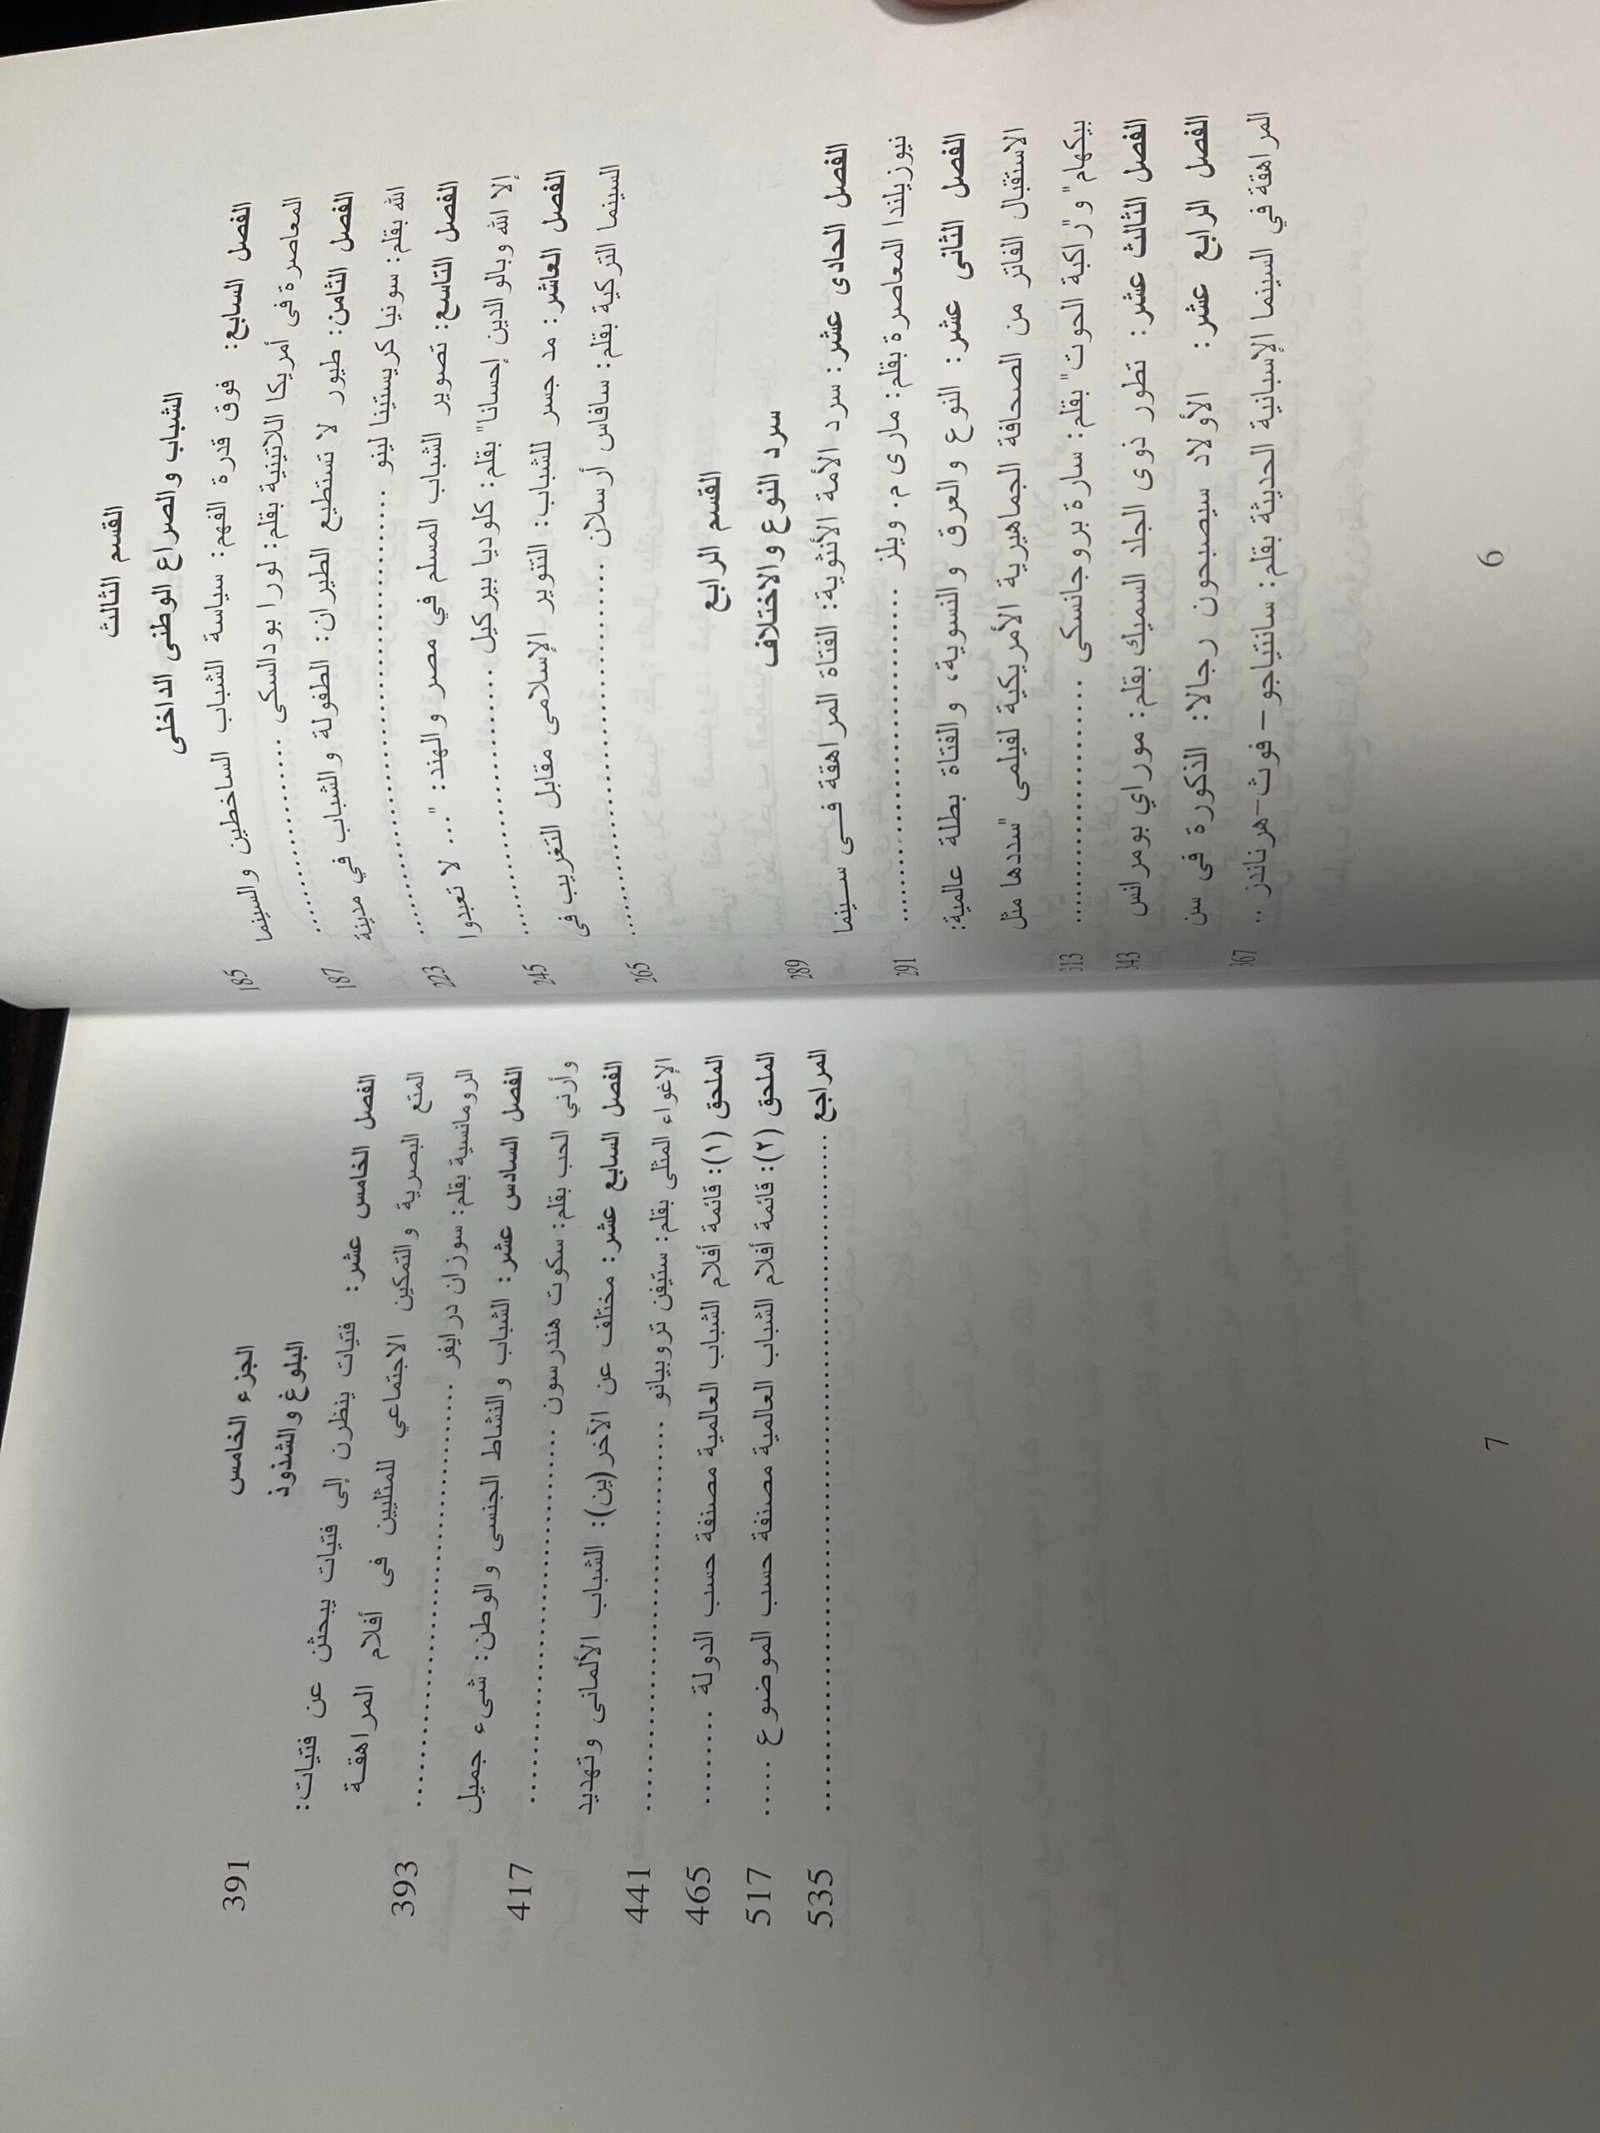 القسم الثالث
الشباب والصراع الوطنى الداخلى
185
الفصل السابع: فوق قدرة الفهم: سياسة الشباب الساخطين والسينما
المعاصرة فى أمريكا اللاتينية بقلم: لورا بودالسكى ........................ 187
الفصل الثامن: طيور لا تستطيع الطيران: الطفولة والشباب في مدينة
الله بقلم: سونيا كريستينا لينو ........................ 223
الفصل التاسع: تصوير الشباب المسلم في مصر والهند: "... لا تعبدوا
إلا الله وبالوالدين إحسانا" بقلم: كلوديا بيركيل ........................ 245
الفصل العاشر: مد جسر للشباب: التنوير الإسلامى مقابل التغريب فى
السينما التركية بقلم: سافاس أرسلان ........................ 265
القسم الرابع
سرد النوع والاختلاف
289
الفصل الحادى عشر: سرد الأمة الأنثوية: الفتاة المراهقة فى سينما
نيوزيلندا المعاصرة بقلم: مارى م. ويلز ........................ 291
الفصل الثانى عشر: النوع والعرق والنسوية، والفتاة بطلة عالمية:
الاستقبال الفاتر من الصحافة الجماهيرية الأمريكية لفيلمى "سددها مثل
بيكهام" و"راكبة الحوت" بقلم: سارة بروجانسكى ........................ 313
الفصل الثالث عشر: تطور ذوى الجلد السميك بقلم: موراي بومرانس 343
الفصل الرابع عشر: الأولاد سيصبحون رجالا: الذكورة فى سن
المراهقة في السينما الإسبانية الحديثة بقلم: سانتياجو – فوث-هرناندز .. 367
6
الجزء الخامس
البلوغ والشذوذ
391
الفصل الخامس عشر: فتيات ينظرن إلى فتيات يبحثن عن فتيات:
المتع البصرية والتمكين الاجتماعي للمثليين فى أفلام المراهقة
الرومانسية بقلم: سوزان درايفر ........................ 393
الفصل السادس عشر: الشباب والنشاط الجنسى والوطن: شىء جميل
وأرني الحب بقلم: سكوت هندرسون ........................ 417
الفصل السابع عشر: مختلف عن الآخر(ين): الشباب الألمانى وتهديد
الإغواء المثلى بقلم: ستيفن تروبيانو ........................ 441
الملحق (١): قائمة أفلام الشباب العالمية مصنفة حسب الدولة ........ 465
الملحق (٢): قائمة أفلام الشباب العالمية مصنفة حسب الموضوع ..... 517
المراجع ........................ 535
7